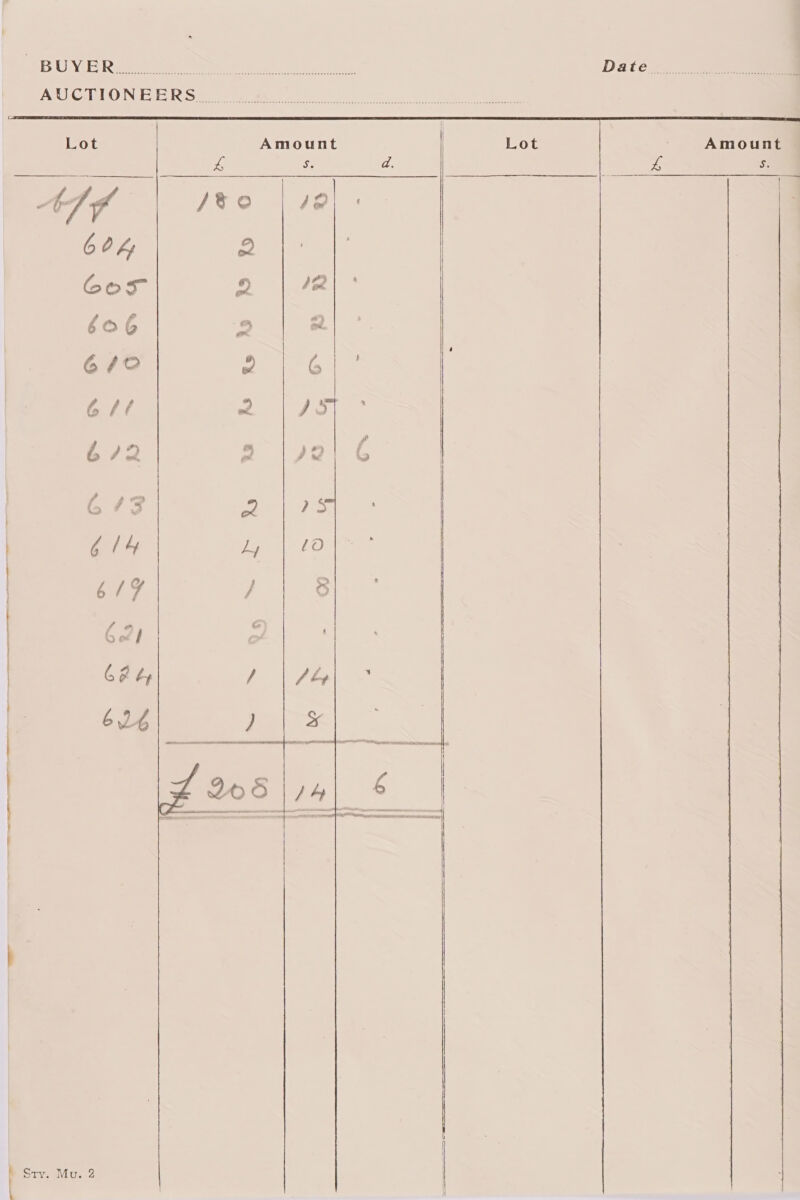 BUYER Date
AUCTIONEERS
Lot Amount Lot Amount
£ s. d. £ s.
180 12 "
604 2 " "
605 2 12 "
606 2 2 "
610 2 6 "
611 2 15 "
612 2 12 6
613 2 15 "
614 4 10 "
619 1 8 "
621 2 " "
624 1 14 "
626 1 8 "
£ 208 14 6
Sty. Mu. 2